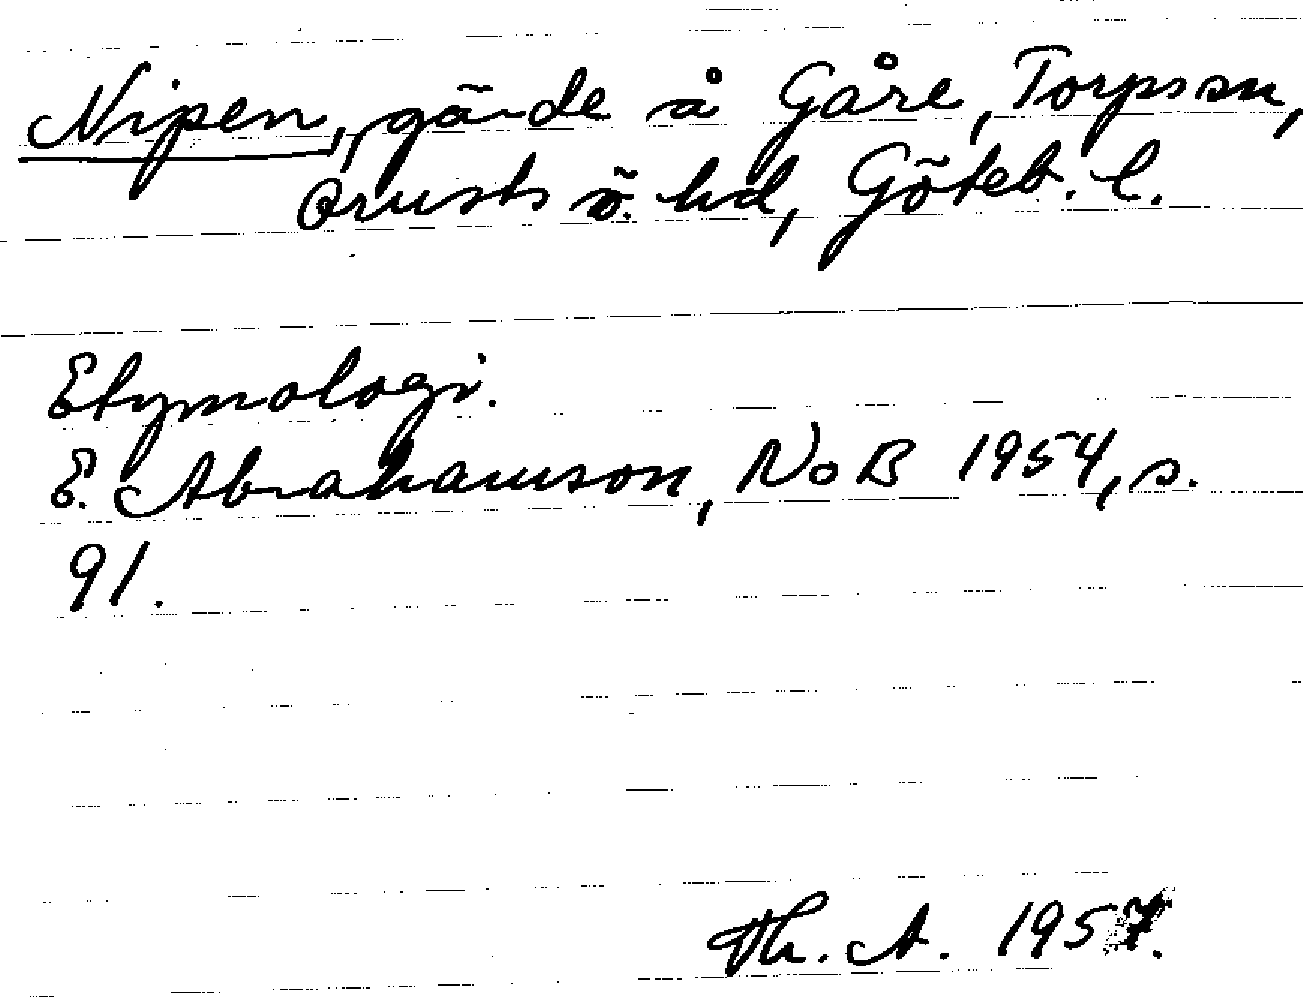 Nipen, gärde å Gåre, Torps sn,
Orusts ö. hd, Göteb. l.
Etymologi.
E. Abrahamson, NoB 1954, s.
91.
Th. A. 1957.